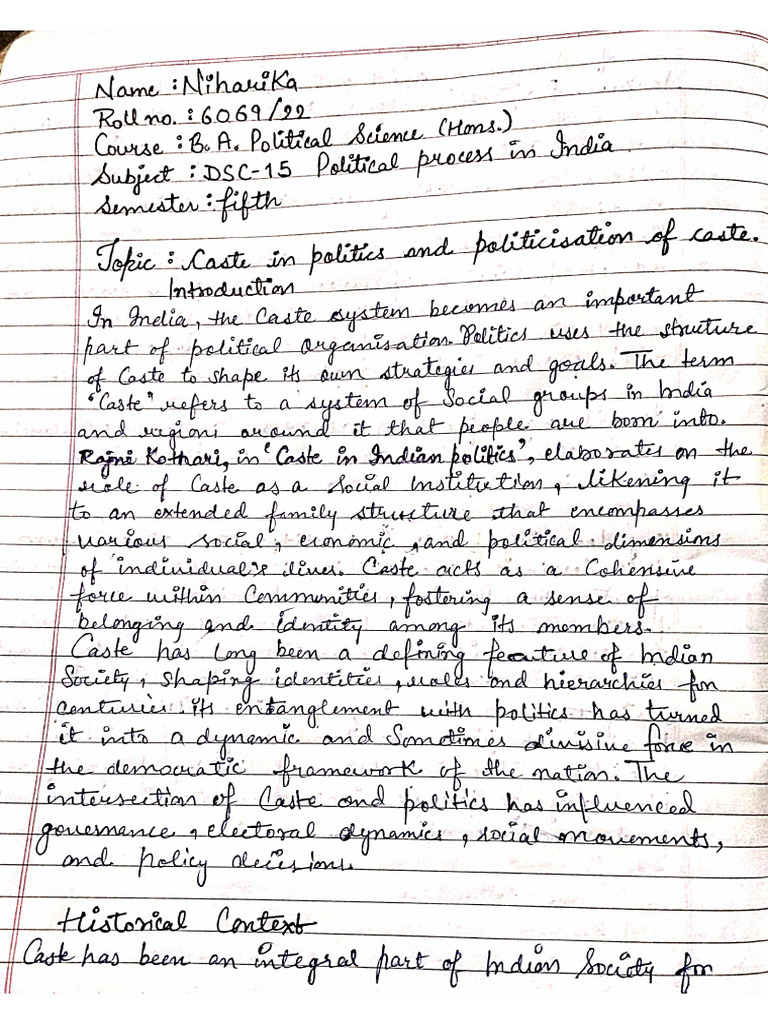 Name : Niharika
Roll no. : 6069/22
Course : B.A. Political Science (Hons.)
Subject : DSC-15 Political process in India
Semester : fifth
Topic : Caste in politics and politicisation of caste.
Introduction
In India, the Caste system becomes an important
part of political organisation. Politics uses the structure
of Caste to shape its own strategies and goals. The term
"Caste" refers to a system of Social groups in India
and regions around it that people are born into.
Rajni Kothari, in "Caste in Indian politics", elaborates on the
role of Caste as a Social Institution, likening it
to an extended family structure that encompasses
various social, economic, and political dimensions
of individual's lives. Caste acts as a Cohensive
force within Communities, fostering a sense of
belonging and identity among its members.
Caste has long been a defining feature of Indian
Society, shaping identities, roles and hierarchies for
centuries. its entanglement with politics has turned
it into a dynamic and Sometimes divisive force in
the democratic framework of the nation. The
intersection of Caste and politics has influenced
governance, electoral dynamics, social movements,
and policy decisions.
Historical Context
Caste has been an integral part of Indian Society for